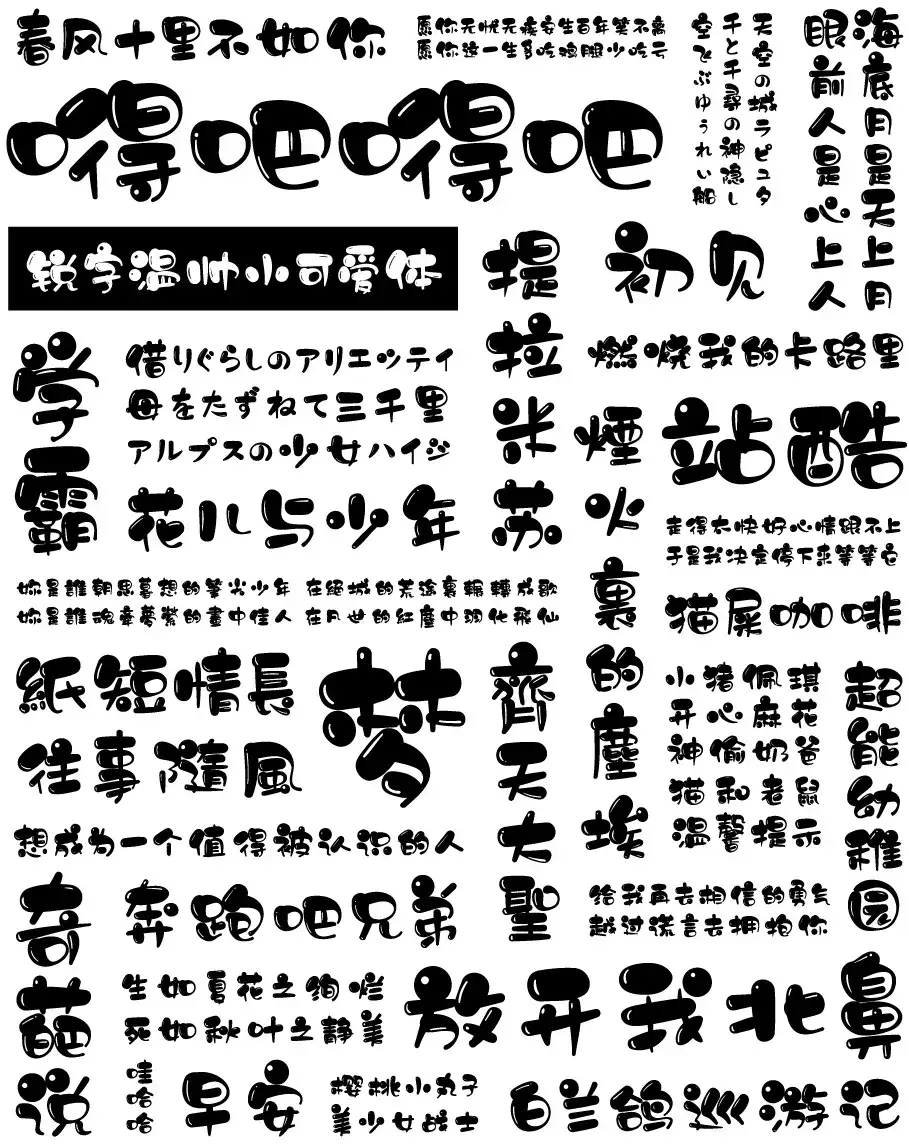 春风十里不如你
愿你无忧无疾安生百年笑不离
愿你这一生多吃鸡腿少吃亏
天空の城ラピュタ
千と千尋の神隠し
空とぶゆうれい船
海底月是天上月
眼前人是心上人
嘚吧嘚吧
锐字温帅小可爱体
提拉米苏
初见
学霸
借りぐらしのアリエッティ
母をたずねて三千里
アルプスの少女ハイジ
燃烧我的卡路里
煙火裏的塵埃
站酷
花儿与少年
走得太快好心情跟不上
于是我决定停下来等等它
妳是誰朝思暮想的筆尖少年
妳是誰魂牽夢縈的畫中佳人
在絕城的荒途裏輾轉成歌
在凡世的紅塵中羽化飛仙
猫屎咖啡
紙短情長
往事隨風
梦
齊天大聖
小猪佩琪
开心麻花
神偷奶爸
猫和老鼠
温馨提示
超能幼稚园
想成为一个值得被认识的人
奇葩说
奔跑吧兄弟
给我再去相信的勇气
越过谎言去拥抱你
生如夏花之绚烂
死如秋叶之静美
放开我北鼻
哇哈哈
早安
樱桃小丸子
美少女战士
白兰鸽巡游记